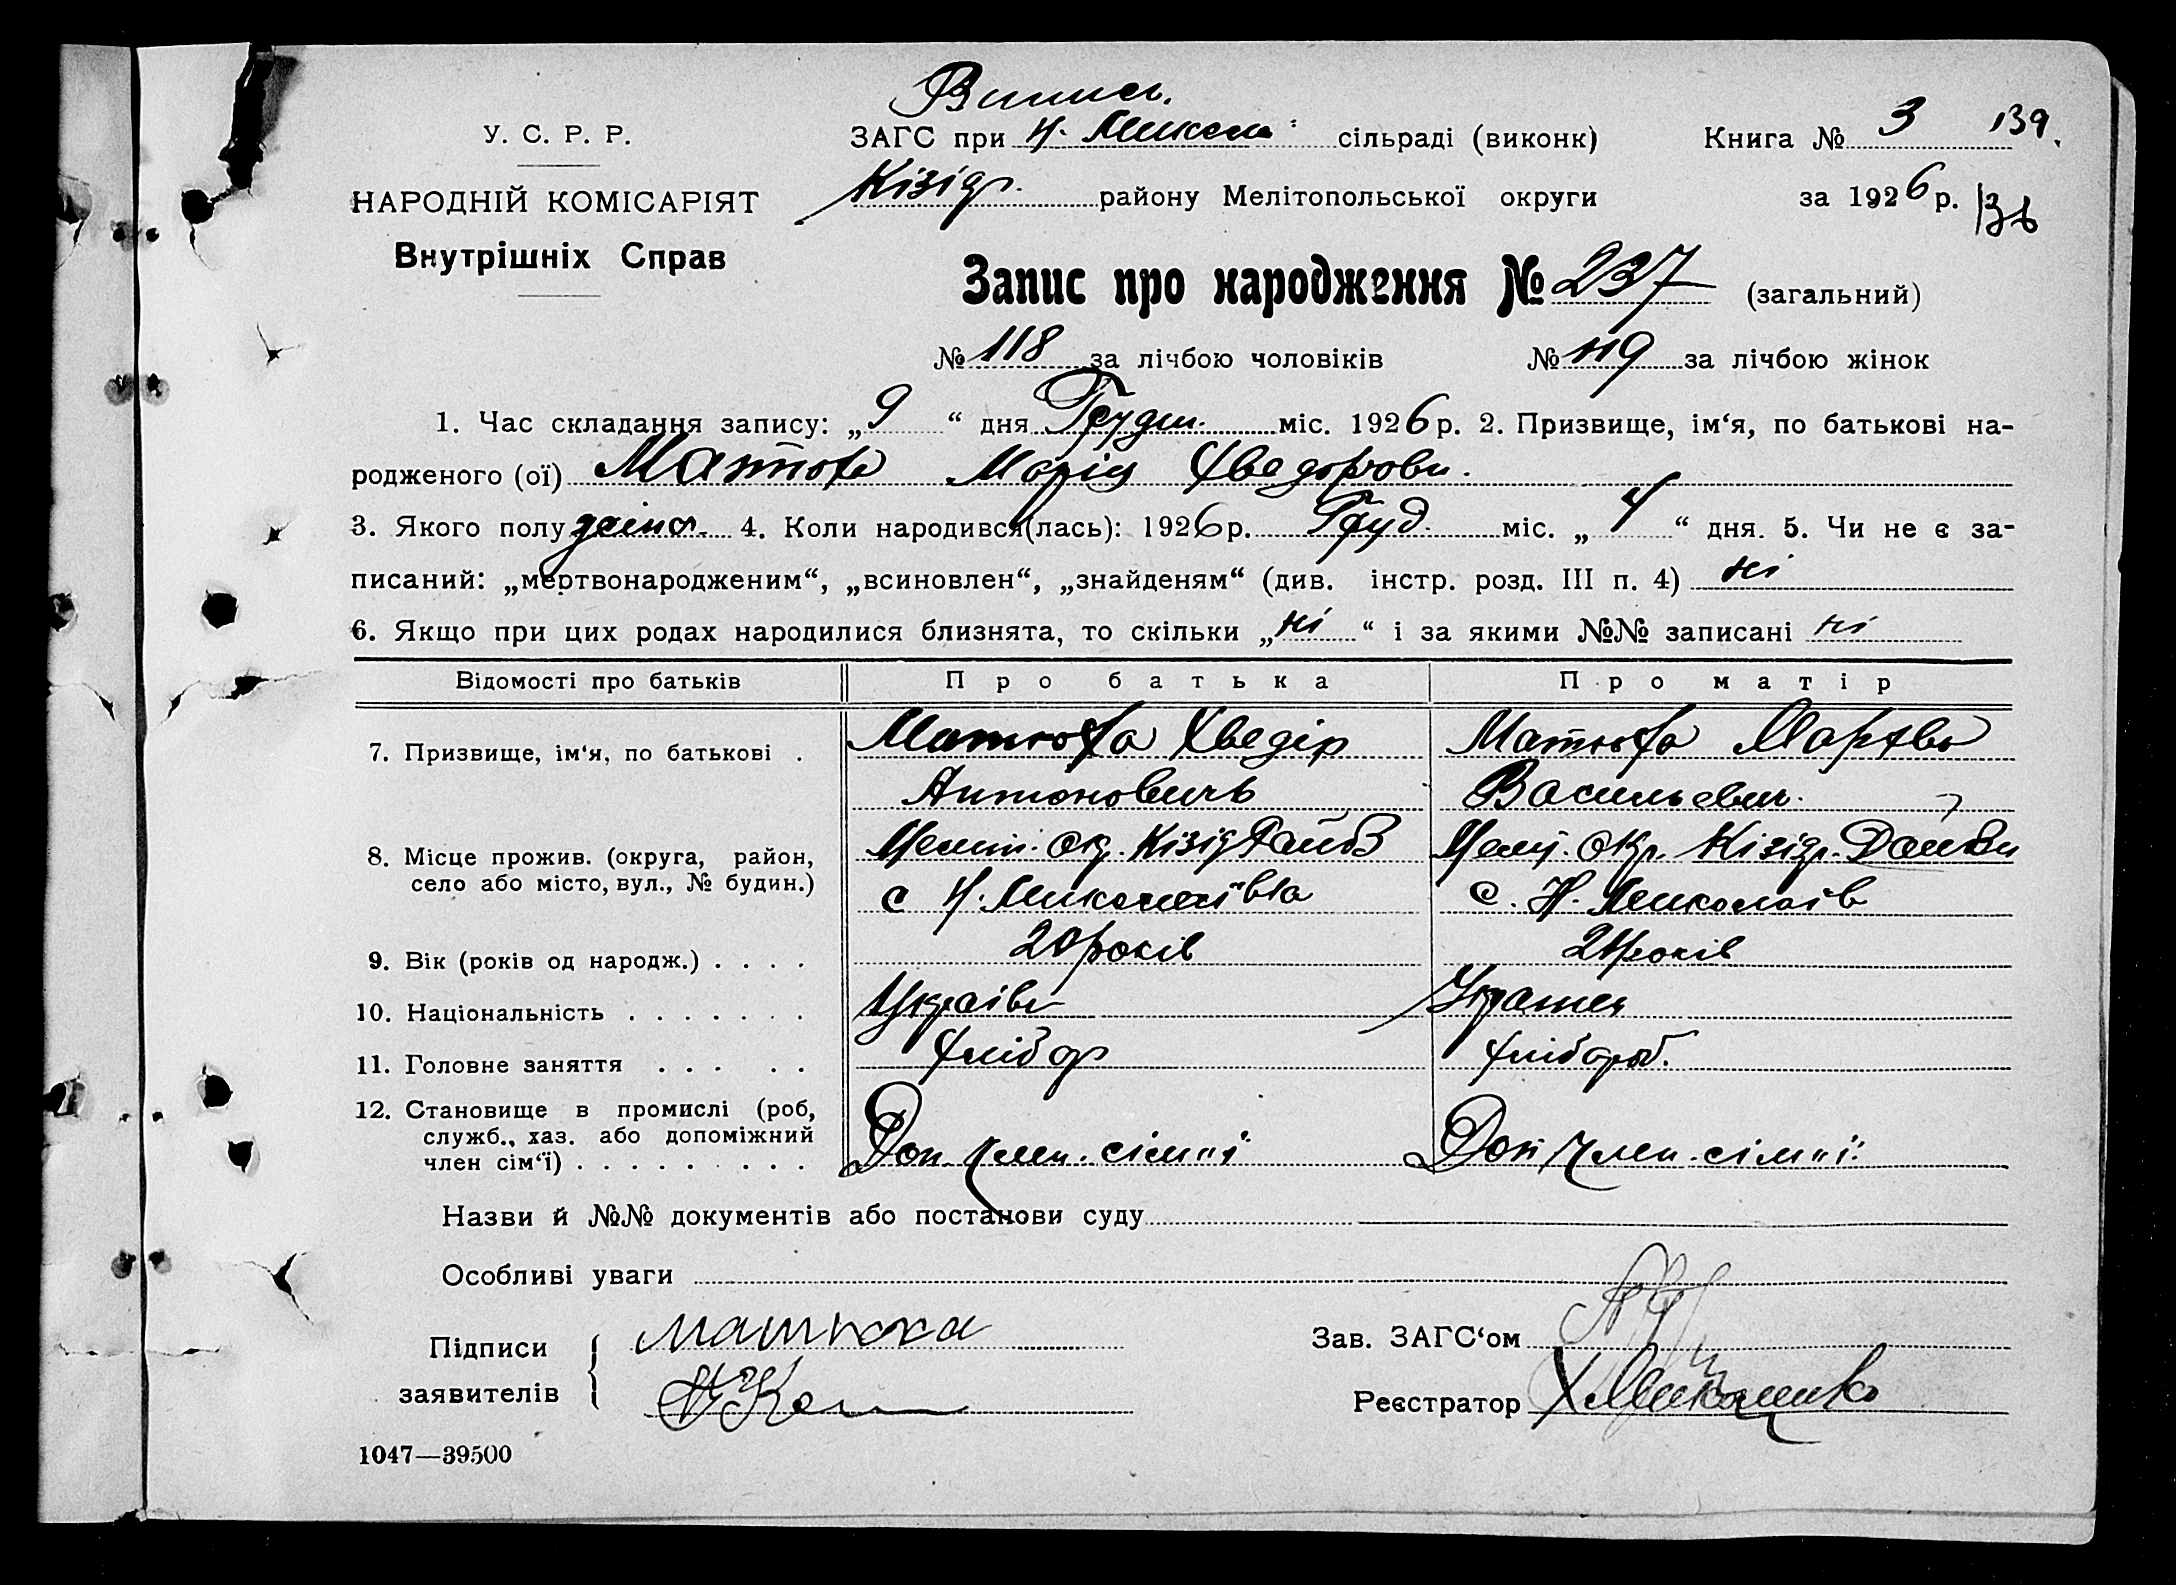 Випись.
У. С. Р. Р.
ЗАГС при Н. Микола сільраді (виконк) Книга № 3 139.
НАРОДНІЙ КОМІСАРІЯТ
Кізіяр. району Мелітопольської округи за 1926 р. 138
Внутрішніх Справ
Запис про народження № 237 (загальний)
№ 118 за лічбою чоловіків № 119 за лічбою жінок
1. Час складання запису: „9“ дня Грудн. міс. 1926 р. 2. Призвище, ім‘я, по батькові на-
родженого (ої) Матюха Марія Хведоровн.
3. Якого полу жіно. 4. Коли народився(лась): 1926 р. Груд. міс. „4“ дня. 5. Чи не є за-
писаний: „мертвонародженим“, „всиновлен“, „знайденям“ (див. інстр. розд. III п. 4) ні
6. Якщо при цих родах народилися близнята, то скільки „ні“ і за якими №№ записані ні
Відомості про батьків Про батька Про матір
7. Призвище, ім‘я, по батькові . Матюха Хведір Матюха Марфа
Антоновичь Васильевн.
8. Місце прожив. (округа, район, село або місто, вул., № будин.) Меліт. окр. Кізіяр Меліт. окр. Кізіяр.
с Н. Миколаївка с. Н. Миколаїв
9. Вік (років од народж.) . . . . 20 років 21 років
10. Національність . . . . . . . Україн
11. Головне заняття . . . . . Хлібор Хлібороб.
12. Становище в промислі (роб, служб., хаз. або допоміжний член сім‘ї) . . . . . . . . . Доп. член. сімʼї Доп член. сімʼї.
Назви й №№ документів або постанови суду
Особливі уваги
Підписи заявителів { Матюха
Зав. ЗАГС‘ом
Реєстратор
1047—39500